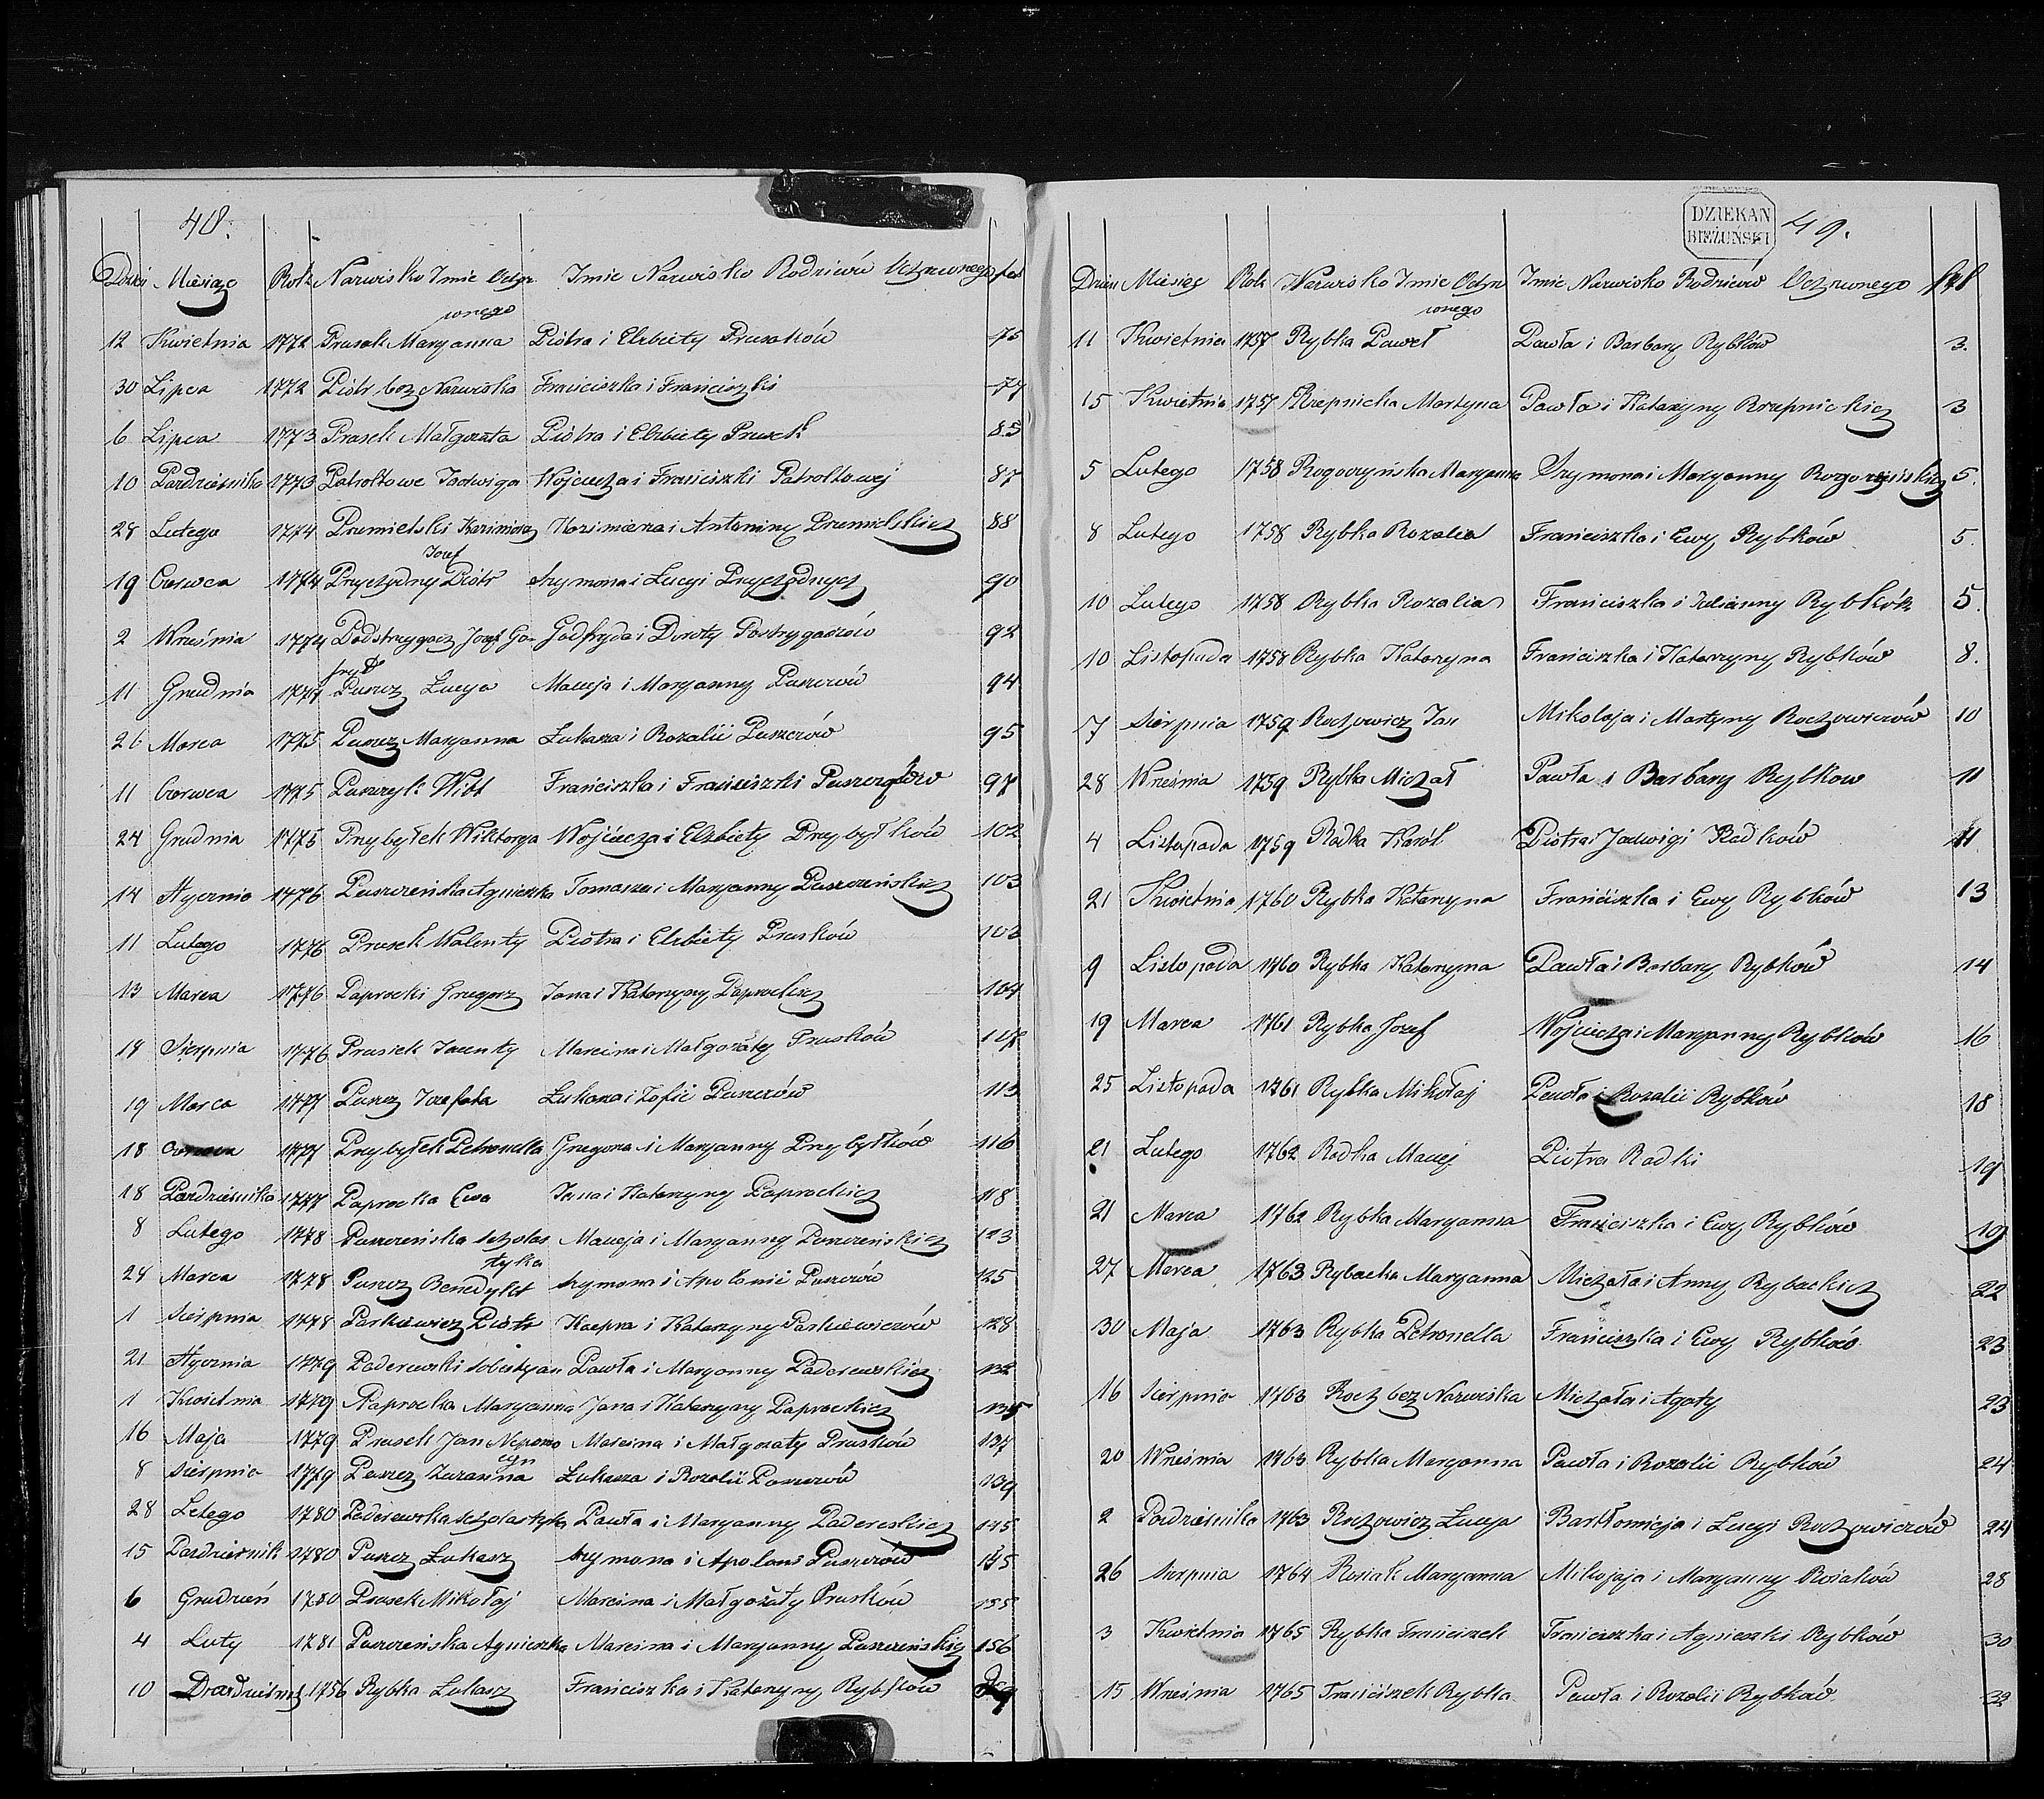 48.
Dzień Miesiąc Rok Nazwisko Imie Oczy Imie Nazwisko Rodziców Oczywonego fol
wonego
12 Kwietnia 1772 Prusak Maryanna Piotra i Elzbiety Prusaków 75
30 Lipca 1772 Piotr bez Nazwiska Franciszka i Franciszki 77
6 Lipca 1773 Prasek Małgorzta Piotra i Elzbiety Prusek 85
10 Pazdziernika 1773 Patroltowe Jadwiga Wojciecha i Franciszki Patroltowej 87
28 Lutego 1774 Przemielski Kazimierz Kazimierza i Antoniny Przemielskich 88
Jozef
19 Czerwca 1774 Przychodny Piotr Szymona i Lucyi Przychodnych 90
2 Wresnia 1774 Podstrzygacz Jozef Go Godfryda i Doroty Postrzygaczów 92
fryd
11 Grudnia 1774 Puszcz Łucya Macieja i Maryanny Puszczów 94
26 Marca 1775 Puszcz Maryanna Łukasza i Rozalii Puszczów 95
11 Czerwca 1775 Puszczyk Witt Franciszka i Franciszki Puszczyków 97
24 Grudnia 1775 Przybyłek Wiktorya Wojciecha i Elzbiety Przybyłków 102
14 Stycznia 1776 Puszczeńska Agnieszka Tomasza i Maryanny Puszczeńskich 103
11 Lutego 1776 Prusek Walenty Piotra i Elzbiety Prusków 103
13 Marca 1776 Paprocki Grzegorz Jana i Katarzyny Paprockich 104
18 Sierpnia 1776 Prusiek Jacenty Marcina i Małgorzaty Prusków
19 Marca 1777 Puszcz Jozefata Łukasza i Zofii Puszczów 113
18 Czerwca 1777 Przybyłek Petronella Grzegorza i Maryanny Przybyłków 116
18 Pazdziernika 1777 Paprocka Ewa Jana i Katarzyny Paprockich 118
8 Lutego 1778 Puszczeńska Scholas Macieja i Maryanny Puszczeńskich 123
tyka
24 Marca 1778 Puszcz Benedykt Szymona i Apolonii Puszczów 125
1 Sierpnia 1778 Paskiewicz Piotr Kacpra i Katarzyny Paskiewiczów 128
21 Stycznia 1779 Paderewski Sebestyan Pawła i Maryanny Paderewskich 132
1 Kwietnia 1779 Paprocka Maryanna Jana i Katarzyny Paprockich 135
16 Maja 1779 Prusek Jan Nepomo Marcina i Małgorzaty Prusków 137
cyn
8 Sierpnia 1779 Puszcz Zuzanna Łukasza i Rozalii Puszczów 139
28 Letego 1780 Paderewska Scholastyka Pawła i Maryanny Padereskich 145
15 Pazdziernik 1780 Puszcz Łukasz Szymona i Apoloni Puszczów 155
6 Grudzień 1780 Prusek Mikołaj Marcina i Małgorzaty Prusków 155
4 Luty 1781 Puszczeńska Agnieszka Marcina i Maryanny Puszczeńskich 156
10 Pazdziernik 1756 Rybka Łukasz Franciszka i Katarzyny Rybków
DZIEKAN
BIEŻUŃSKI
49.
Dzień Miesiąc Rok Nazwisko Imie Oczy Imie Nazwisko Rodziców Oczywonego fol
wonego
11 Kwietnia 1757 Rybka Paweł Pawła i Barbary Rybków 3.
15 Kwietnia 1757 Rzepnicka Martyna Pawła i Katarzyny Rzepnickich 3
5 Lutego 1758 Rogoczyńska Maryanna Szymona i Maryanny Rogoczyńskich 5.
8 Lutego 1758 Rybka Rozalia Franciszka i Ewy Rybków 5.
10 Lutego 1758 Rybka Rozalia Franciszka i Julianny Rybków 5.
10 Listopada 1758 Rybka Katarzyna Franciszka i Katarzyny Rybków 8.
7 Sierpnia 1759 Rochowicz Jan Mikolaja i Martyny Rochowiczów 10
28 Wresnia 1759 Rybka Michał Pawła i Barbary Rybkow 11
4 Listopada 1759 Radka Karól Piotra i Jadwigi Radków 11
21 Kwietnia 1760 Rybka Katarzyna Franciszka i Ewy Rybków 13
9 Listopada 1760 Rybka Katarzyna Pawła i Barbary Rybków 14
19 Marca 1761 Rybka Jozef Wojciecha i Maryanny Rybków 16
25 Listopada 1761 Rybka Mikołaj Pawła i Rozalii Rybków 18
21 Lutego 1762 Radka Maciej Piotra Radki 19
21 Marca 1762 Rybka Maryanna Franciszka i Ewy Rybków 19
27 Marca 1763 Rybacka Maryanna Michała i Anny Rybackich 22
30 Maja 1763 Rybka Petronella Franciszka i Ewy Rybków 23
16 Sierpnia 1763 Roch bez Nazwiska Michała i Agaty 23
20 Wresnia 1763 Rybka Maryanna Pawła i Rozalii Rybków 24
2 Pazdziernika 1763 Rochowicz Łucya Bartłomieja i Lucyi Rochowiczów 24
26 Sierpnia 1764 Rosiak Maryanna Mikołaja i Maryanny Rosiaków 28
3 Kwietnia 1765 Rybka Franciszek Franciszka i Agnieszki Rybków 30
15 Wresnia 1765 Franciszek Rybka Pawła i Rozalii Rybków 32